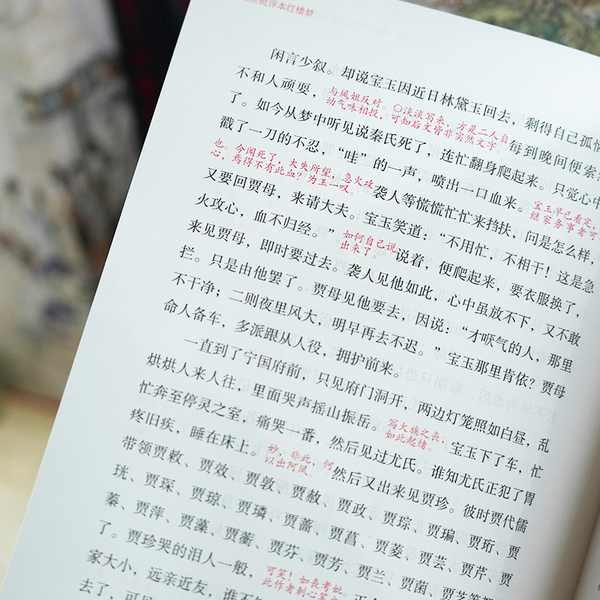 批评本红楼梦
闲言少叙。却说宝玉因近日林黛玉回去，剩得自己孤
不和人顽耍，与凤姐反对。○淡淡写来，方是二人自幼气味相投，可知后文皆非实然文字。每到晚间便索
了。如今从梦中听见说秦氏死了，连忙翻身爬起来。只觉心中
戳了一刀的不忍，“哇”的一声，喷出一口血来。宝玉早已看定，继家务事者可
也。今闻死了，大失所望，急火攻心，焉得不有此血？为玉一叹。袭人等慌慌忙忙来挡扶，问是怎么样，
又要回贾母，来请大夫。宝玉笑道：“不用忙，不相干！这是急
火攻心，血不归经。”如何自己说出来了。说着，便爬起来，要衣服换了，
来见贾母，即时要过去。袭人见他如此，心中虽放不下，又不敢
拦。只是由他罢了。贾母见他要去，因说：“才咽气的人，那里
不干净；二则夜里风大，明早再去不迟。”宝玉那里肯依？贾母
命人备车，多派跟从人役，拥护前来。
一直到了宁国府前，只见府门洞开，两边灯笼照如白昼，乱
烘烘人来人往，里面哭声摇山振岳。写大族之丧，如此起绪。宝玉下了车，忙
忙奔至停灵之室，痛哭一番，然后见过尤氏。谁知尤氏正犯了胃
疼旧疾，睡在床上。妙，非此，何以出阿凤。然后又出来见贾珍。彼时贾代儒
带领贾敕、贾效、贾敦、贾赦、贾政、贾琮、贾㻞、贾珩、贾
珖、贾琛、贾琼、贾璘、贾蔷、贾菖、贾菱、贾芸、贾芹、贾
蓁、贾萍、贾藻、贾蘅、贾芬、贾芳、贾兰、贾菌、贾芝等
了。贾珍哭的泪人一般，可笑！如丧考妣，此作者刺心笔也
家大小，远亲近友，谁不
去了，可见